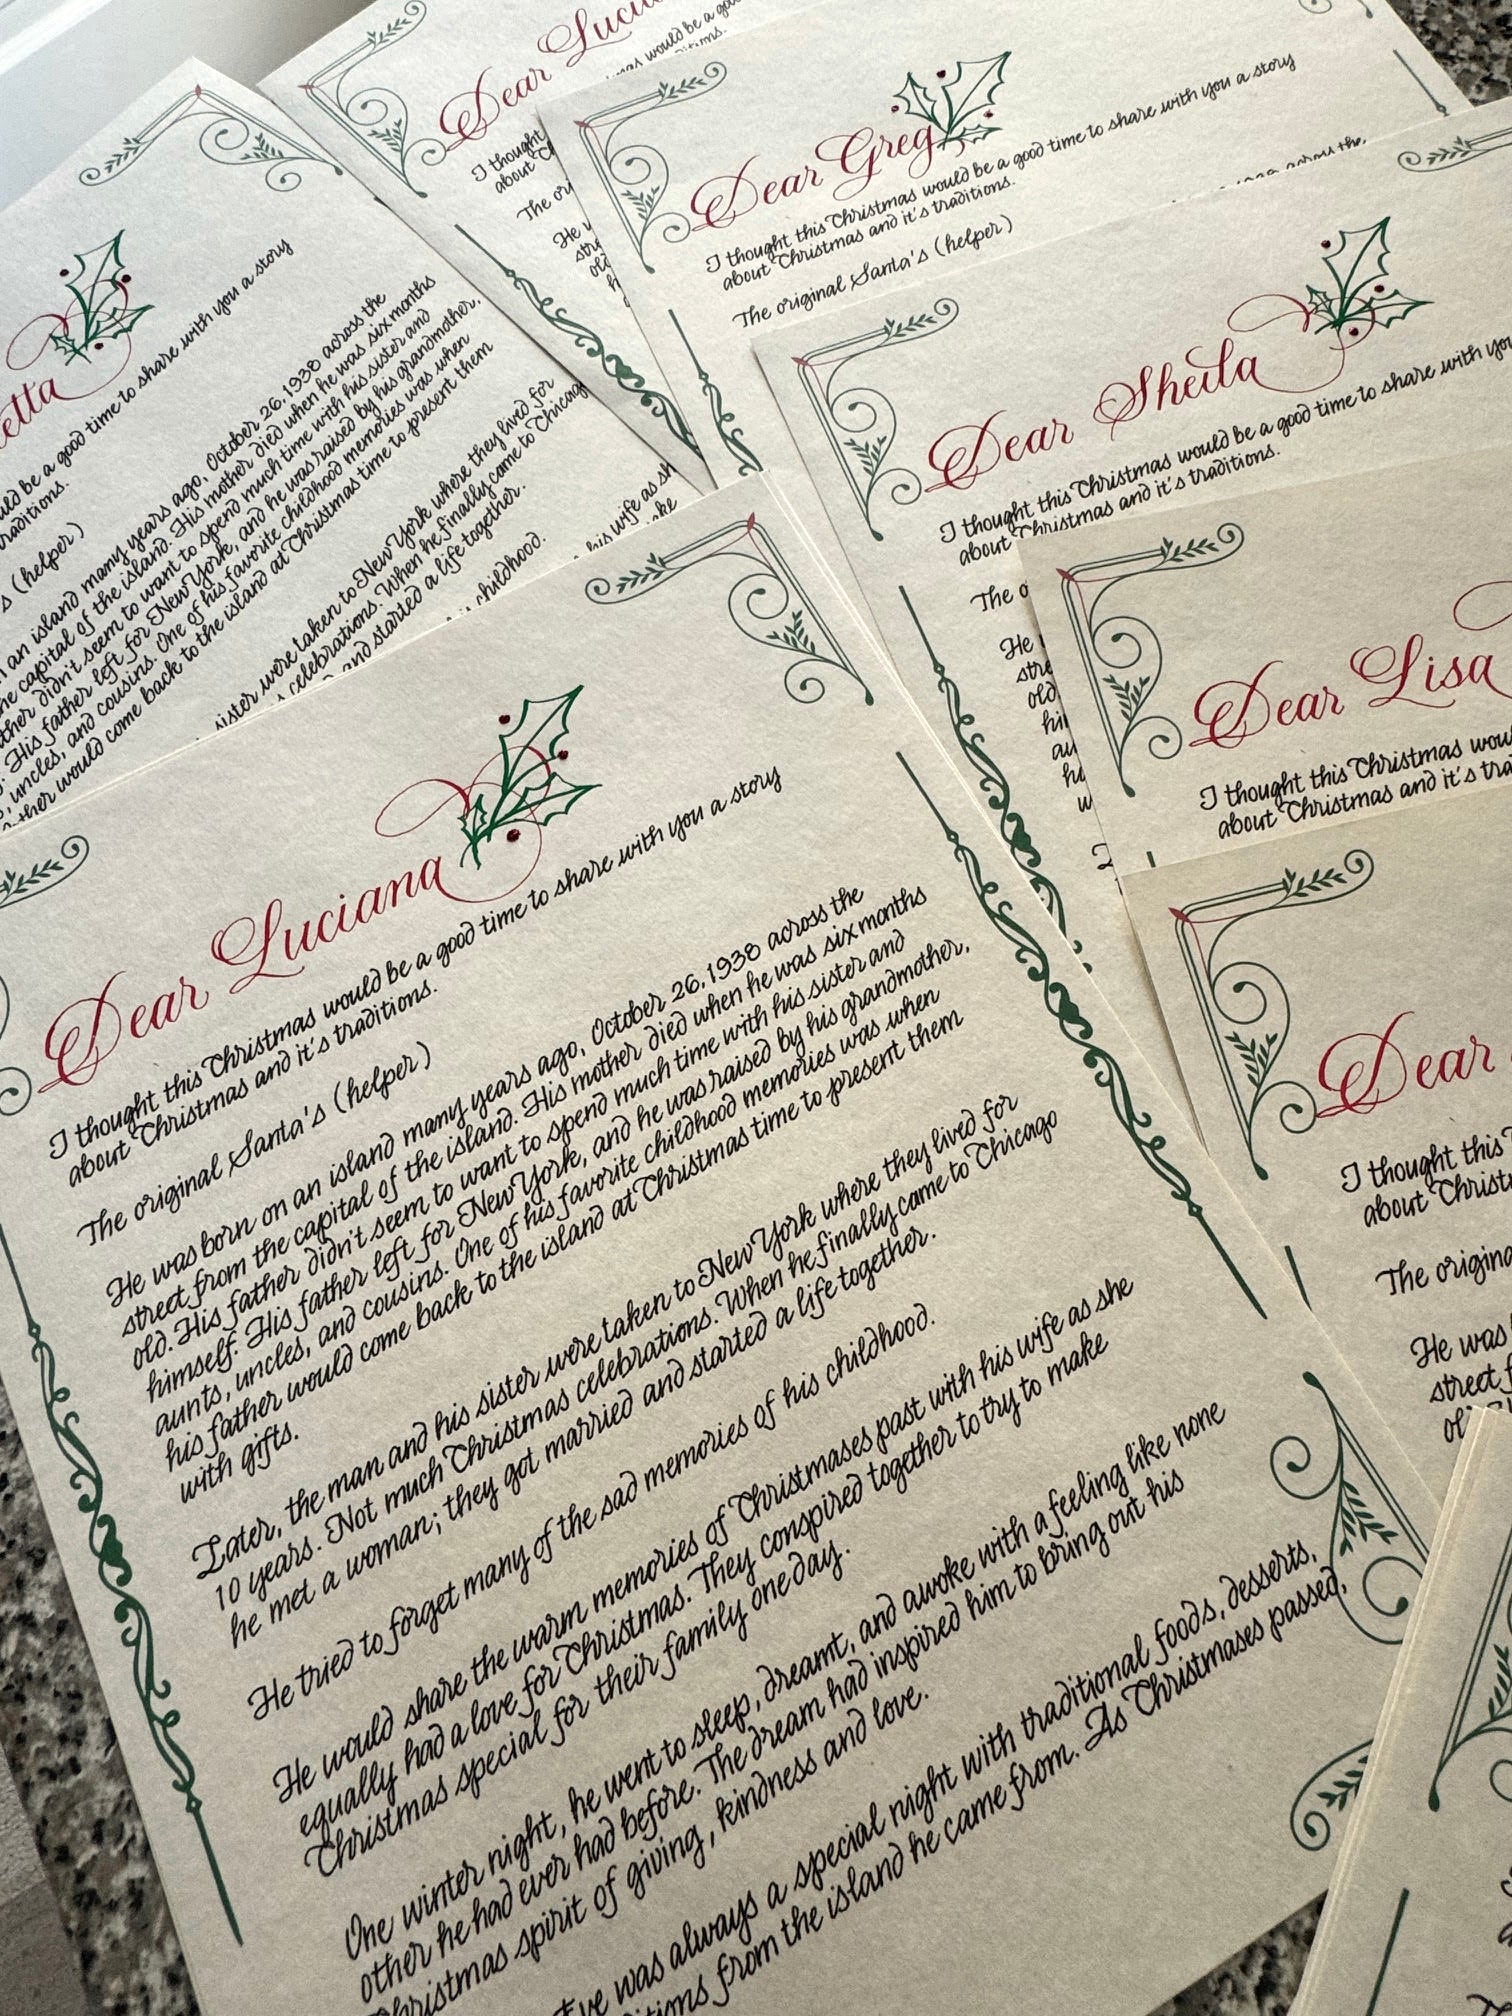 Dear
I thought
about
The
He
Dear Greg,
I thought this Christmas would be a good time to share with you a story
about Christmas and it's traditions.
The original Santa's (helper)
etta
would be a good time to share with you a story
traditions.
(helper)
an island many years ago, October 26, 1938 across the
the capital of the island. His mother died when he was six months
father didn't seem to want to spend much time with his sister and
His father left for New York, and he was raised by his grandmother,
uncles, and cousins. One of his favorite childhood memories was when
father would come back to the island at Christmas time to present them
sister were taken to New York where they lived for
celebrations. When he finally came to Chicago
and started a life together.
childhood.
his wife as
Dear Sheila
I thought this Christmas would be a good time to share with you
about Christmas and it's traditions.
The
He
Dear Lisa
I thought this Christmas
about Christmas and it's
Dear Luciana
I thought this Christmas would be a good time to share with you a story
about Christmas and it's traditions.
The original Santa's (helper)
He was born on an island many years ago, October 26, 1938 across the
street from the capital of the island. His mother died when he was six months
old. His father didn't seem to want to spend much time with his sister and
himself. His father left for New York, and he was raised by his grandmother,
aunts, uncles, and cousins. One of his favorite childhood memories was when
his father would come back to the island at Christmas time to present them
with gifts.
Later, the man and his sister were taken to New York where they lived for
10 years. Not much Christmas celebrations. When he finally came to Chicago
he met a woman; they got married and started a life together.
He tried to forget many of the sad memories of his childhood.
He would share the warm memories of Christmases past with his wife as she
equally had a love for Christmas. They conspired together to try to make
Christmas special for their family one day.
One winter night, he went to sleep, dreamt, and awoke with a feeling like none
other he had ever had before. The dream had inspired him to bring out his
Christmas spirit of giving, kindness and love.
Eve was always a special night with traditional foods, desserts,
from the island he came from. As Christmases passed,
Dear
I thought this
about
The
He was
street